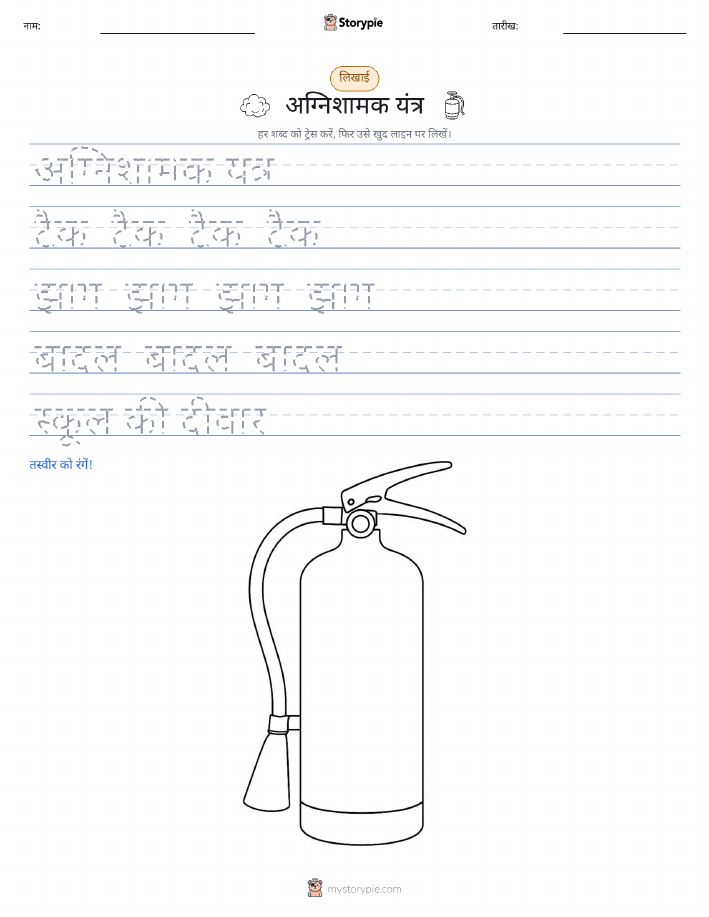 नाम:
Storypie
तारीख:
लिखाई
अग्निशामक यंत्र
हर शब्द को ट्रेस करें, फिर उसे खुद लाइन पर लिखें।
अग्निशामक यंत्र
टैंक टैंक टैंक टैंक
झाग झाग झाग झाग
बादल बादल बादल
स्कूल की दीवार
तस्वीर को रंगें!
mystorypie.com